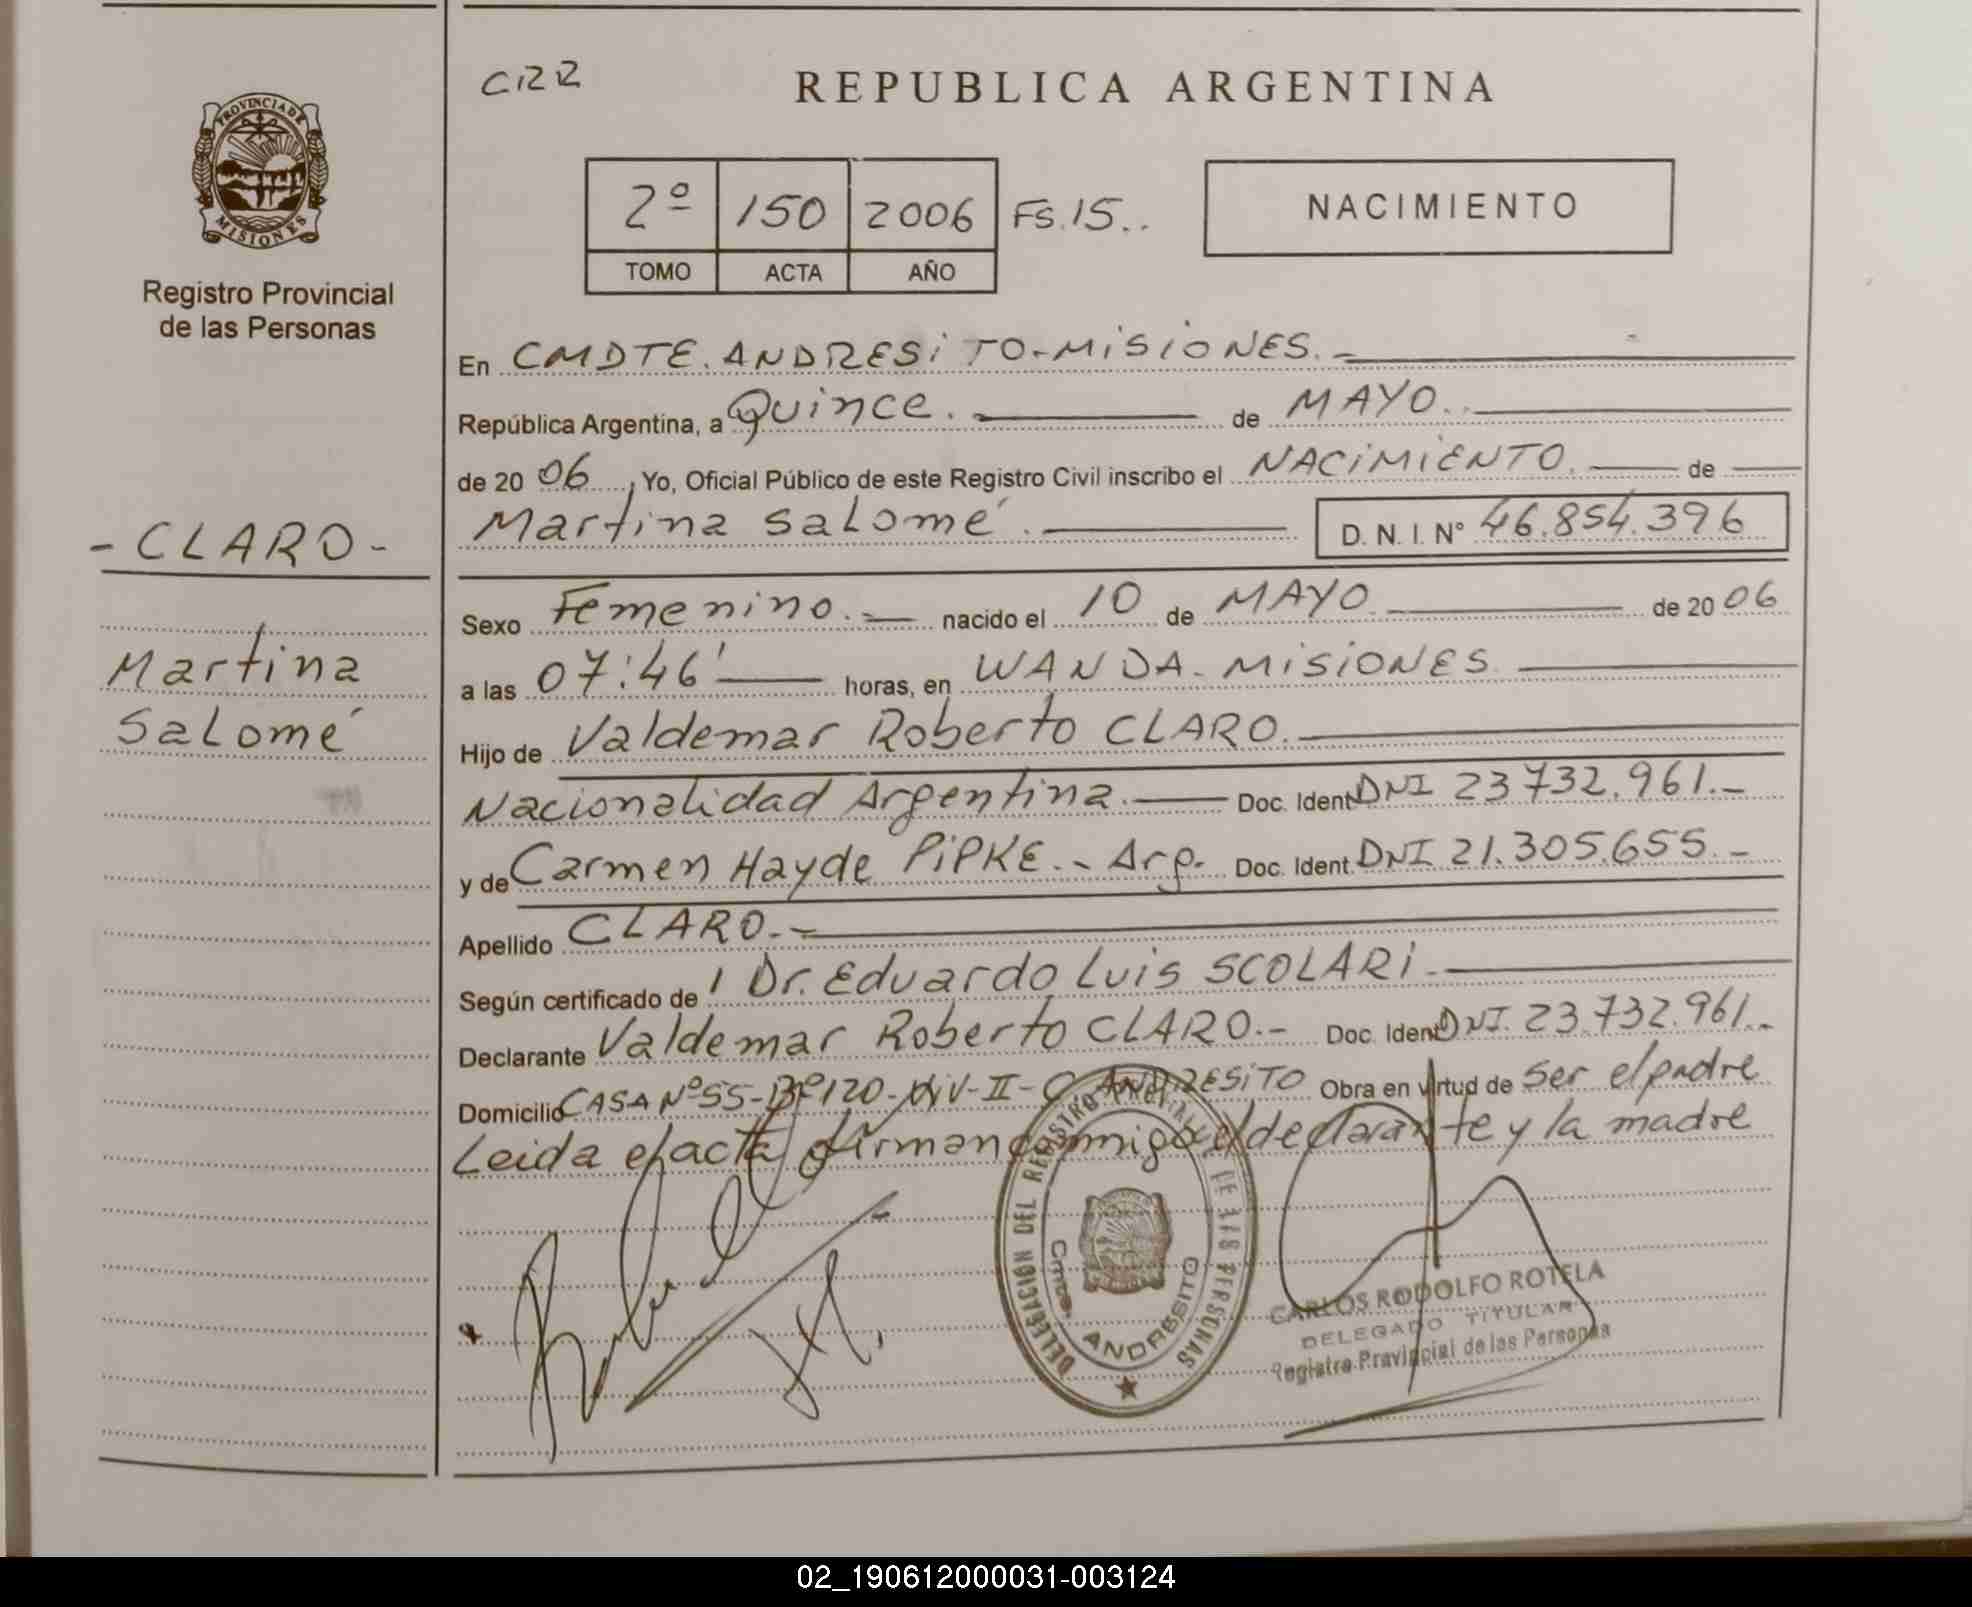 CRR
REPUBLICA ARGENTINA
PROVINCIA DE MISIONES
Registro Provincial
de las Personas
2º 150 2006 FS.15..
TOMO ACTA AÑO
NACIMIENTO
En CMDTE. ANDRESiTO-MiSiONES.-
República Argentina, a Quince. de MAYO.
de 2006, Yo, Oficial Público de este Registro Civil inscribo el NACiMiENTO. de
-CLARO-
Martina Salomé. D. N. I. Nº 46.854.396
Sexo Femenino. nacido el 10 de MAYO. de 2006
Martina
Salomé
a las 07:46' horas, en WANDA-MiSiONES.
Hijo de Valdemar Roberto CLARO.
Nacionalidad Argentina. Doc. Ident. DNI 23.732.961.-
y de Carmen Hayde PiPKE.- Arg. Doc. Ident. DNI 21.305.655.-
Apellido CLARO.-
Según certificado de Dr. Eduardo Luis SCOLARi.
Declarante Valdemar Roberto CLARO.- Doc. Ident DNI. 23.732.961.-
Domicilio CASA Nº55-Bº120-ViV-II-C. ANDRESiTO Obra en virtud de ser el padre
Leida el acta firman conmigo el declarante y la madre
DELEGACION DEL REGISTRO PROVINCIAL DE LAS PERSONAS
Cmte. ANDRESITO
CARLOS RODOLFO ROTELA
DELEGADO TITULAR
Registro Provincial de las Personas
02_190612000031-003124